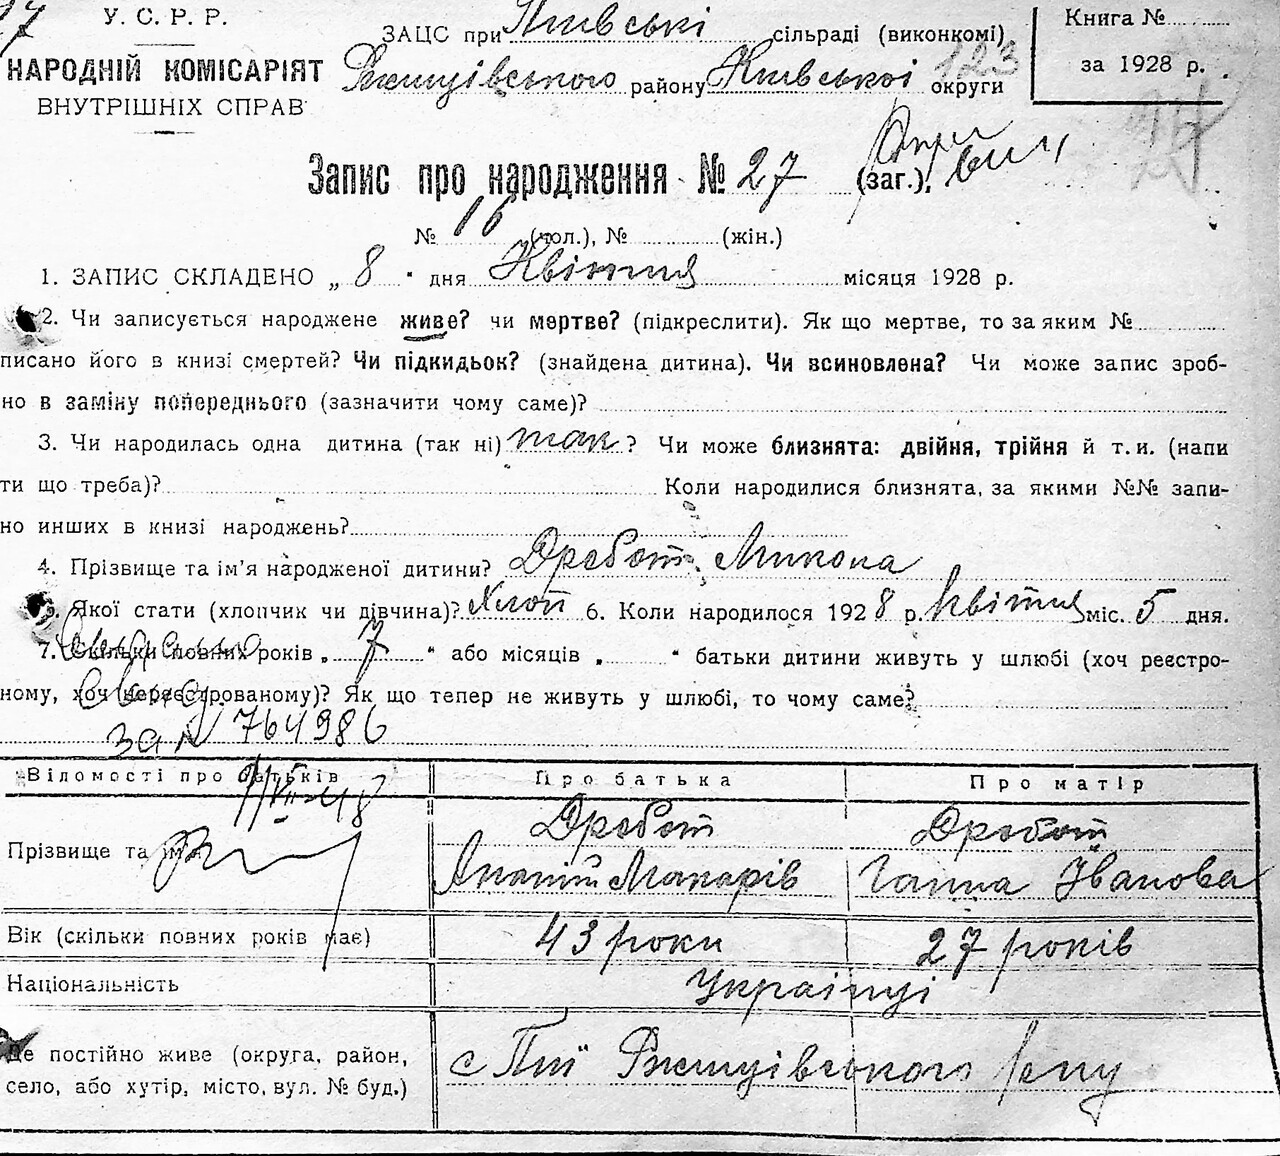 У. С. Р. Р.
НАРОДНІЙ КОМІСАРІЯТ
ВНУТРІШНІХ СПРАВ
ЗАЦС при Пиївські сільраді (виконкомі)
Ржищівського району Київської округи
123
Книга №
за 1928 р.
Запис про народження № 27 (заг.),
№ 16 (чол.), № (жін.)
1. ЗАПИС СКЛАДЕНО „ 8 " дня Квітня місяця 1928 р.
2. Чи записується народжене живе? чи мертве? (підкреслити). Як що мертве, то за яким №
писано його в книзі смертей? Чи підкидьок? (знайдена дитина). Чи всиновлена? Чи може запис зроб-
но в заміну попереднього (зазначити чому саме)?
3. Чи народилась одна дитина (так ні) так ? Чи може близнята: двійня, трійня й т. и. (напи
ти що треба)? Коли народилися близнята, за якими №№ запи-
но инших в книзі народжень?
4. Прізвище та ім'я народженої дитини? Дробот Микола
5. Якої стати (хлопчик чи дівчина)? Хлоп 6. Коли народилося 1928 р. Квітня міс. 5 дня.
7. Скільки повних років „ 7 " або місяців „ " батьки дитини живуть у шлюбі (хоч реєстро-
ному, хоч нереєстрованому)? Як що тепер не живуть у шлюбі, то чому саме?
за № 764986
Відомості про батьків Про батька Про матір
Прізвище та ім'я
Дробот Дробот
Макарів Ганна Іванова
Вік (скільки повних років має) 43 роки 27 років
Національність Українці
Де постійно живе (округа, район,
село, або хутір, місто, вул. № буд.)
с Пиї Ржищівського р-ну